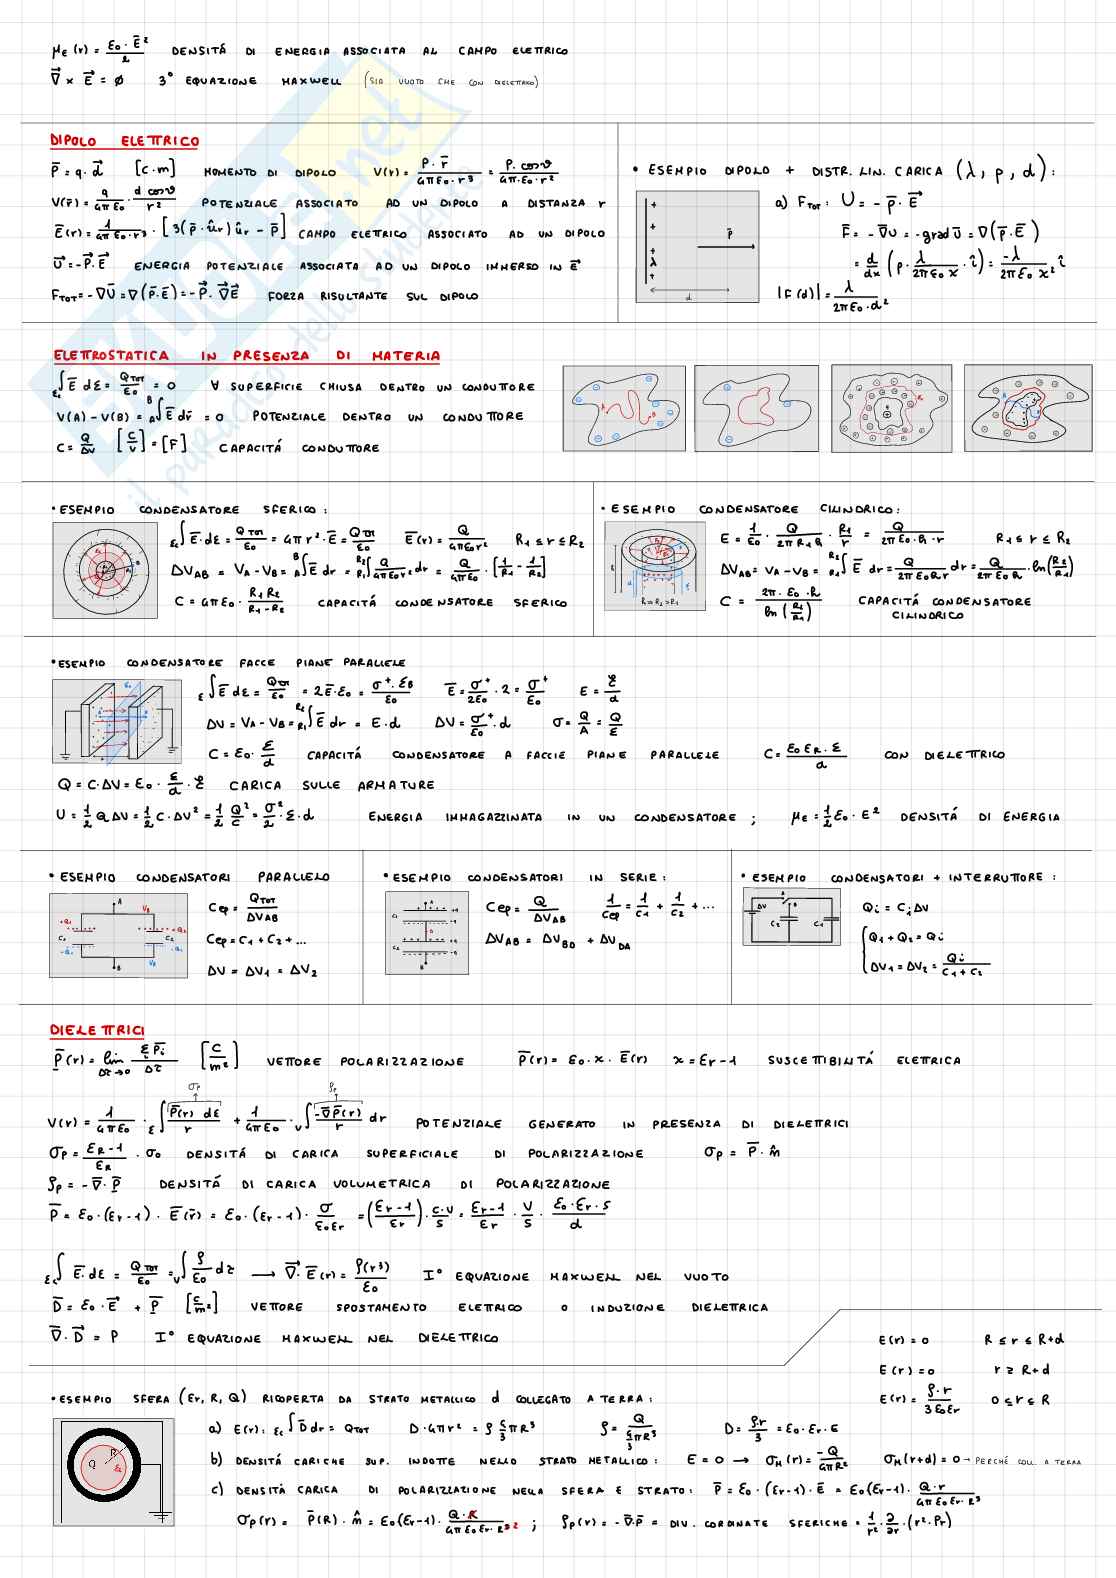 μE(r) = ε0·Ē²/2 DENSITÁ DI ENERGIA ASSOCIATA AL CAMPO ELETTRICO
∇ × E = Ø 3° EQUAZIONE MAXWELL (SIA VUOTO CHE CON DIELETTRICO)
DIPOLO ELETTRICO
P̄ = q·d [C·m] MOMENTO DI DIPOLO V(r) = P·r̄/4πε0·r³ = P·cosϑ/4πε0·r²
V(r̄) = q/4πε0 · d cosϑ/r² POTENZIALE ASSOCIATO AD UN DIPOLO A DISTANZA r
Ē(r) = 1/4πε0·r³ · [3(p̄·ûr)ûr − p̄] CAMPO ELETTRICO ASSOCIATO AD UN DIPOLO
U = −P·E ENERGIA POTENZIALE ASSOCIATA AD UN DIPOLO IMMERSO IN E
FTOT = −∇U = ∇(p̄·Ē) = −P·∇E FORZA RISULTANTE SUL DIPOLO
• ESEMPIO DIPOLO + DISTR. LIN. CARICA (λ, p, d):
a) FTOT: U = −p̄·E
F̄ = −∇U = −grad U = ∇(p̄·E)
= d/dx (p·λ/2πε0x·î) = −λ/2πε0x² î
|F(d)| = λ/2πε0·d²
p̄
λ
d
ELETTROSTATICA IN PRESENZA DI MATERIA
Σc∫ Ē dΣ = QTOT/ε0 = 0 ∀ SUPERFICIE CHIUSA DENTRO UN CONDUTTORE
V(A) − V(B) = A∫B Ē dr̄ = 0 POTENZIALE DENTRO UN CONDUTTORE
C = Q/ΔV [C/V] = [F] CAPACITÁ CONDUTTORE
• ESEMPIO CONDENSATORE SFERICO:
Σc∫ Ē·dΣ = QTOT/ε0 = 4πr²·Ē = QTOT/ε0 Ē(r) = Q/4πε0r² R1 ≤ r ≤ R2
ΔVAB = VA − VB = A∫B Ē dr = R1∫R2 Q/4πε0r² dr = Q/4πε0 · [1/R1 − 1/R2]
C = 4πε0 · R1R2/R1−R2 CAPACITÁ CONDENSATORE SFERICO
• ESEMPIO CONDENSATORE CILINDRICO:
E = 1/ε0 · Q/2πR1h · R1/r = Q/2πε0·h·r R1 ≤ r ≤ R2
ΔVAB = VA − VB = R1∫R2 E dr = Q/2πε0hr dr = Q/2πε0h · ln(R2/R1)
C = 2π·ε0·h/ln(R2/R1) CAPACITÁ CONDENSATORE
CILINDRICO
• ESEMPIO CONDENSATORE FACCE PIANE PARALLELE
Σ∫ Ē dΣ = QTOT/ε0 = 2Ē·Σ0 = σ⁺·ΣB/ε0 Ē = σ⁺/2ε0 · 2 = σ⁺/ε0 E = ℰ/d
ΔV = VA − VB = R1∫R2 Ē dr = E·d ΔV = σ⁺/ε0·d σ = Q/A = Q/Σ
C = ε0·Σ/d CAPACITÁ CONDENSATORE A FACCIE PIANE PARALLELE C = ε0εR·Σ/d CON DIELETTRICO
Q = C·ΔV = ε0·Σ/d·ℰ CARICA SULLE ARMATURE
U = 1/2 QΔV = 1/2 C·ΔV² = 1/2 Q²/C = σ²/2·Σ·d ENERGIA IMMAGAZZINATA IN UN CONDENSATORE ; μE = 1/2 ε0·E² DENSITÁ DI ENERGIA
• ESEMPIO CONDENSATORI PARALLELO
Cep = QTOT/ΔVAB
Cep = C1 + C2 + ...
ΔV = ΔV1 = ΔV2
• ESEMPIO CONDENSATORI IN SERIE:
Cep = Q/ΔVAB 1/Cep = 1/C1 + 1/C2 + ...
ΔVAB = ΔVBD + ΔVDA
• ESEMPIO CONDENSATORI + INTERRUTTORE:
Qi = CiΔV
Q1 + Q2 = Qi
ΔV1 = ΔV2 = Qi/C1+C2
DIELETTRICI
P̄(r) = lim Δτ→0 Σi P̄i/Δτ [C/m²] VETTORE POLARIZZAZIONE P̄(r) = ε0·x·Ē(r) x = εr−1 SUSCETTIBILITÁ ELETTRICA
σp ρp
V(r) = 1/4πε0 · Σ∫ P̄(r) dΣ/r + 1/4πε0 · V∫ −∇P̄(r)/r dr POTENZIALE GENERATO IN PRESENZA DI DIELETTRICI
σp = εR−1/εR · σ0 DENSITÁ DI CARICA SUPERFICIALE DI POLARIZZAZIONE σp = P̄·n̂
ρp = −∇·P DENSITÁ DI CARICA VOLUMETRICA DI POLARIZZAZIONE
P̄ = ε0·(εr−1)·Ē(r̄) = ε0·(εr−1)·σ/ε0εr = (εr−1/εr)·C·V/S = εr−1/εr · V/S · ε0·εr·S/d
Σc∫ Ē·dΣ = QTOT/ε0 = V∫ ρ/ε0 dτ → ∇·E(r) = ρ(r³)/ε0 I° EQUAZIONE MAXWELL NEL VUOTO
D̄ = ε0·E + P̄ [C/m²] VETTORE SPOSTAMENTO ELETTRICO O INDUZIONE DIELETTRICA
∇·D = P I° EQUAZIONE MAXWELL NEL DIELETTRICO
E(r) = 0 R ≤ r ≤ R+d
E(r) = 0 r ≥ R+d
E(r) = ρ·r/3ε0εr 0 ≤ r ≤ R
• ESEMPIO SFERA (εr, R, Q) RICOPERTA DA STRATO METALLICO d COLLEGATO A TERRA:
a) E(r): Σc∫ D̄ dr = QTOT D·4πr² = ρ 4/3 πR³ ρ = Q/(4/3 πR³) D = ρ·r/3 = ε0·εr·E
b) DENSITÁ CARICHE SUP. INDOTTE NELLO STRATO METALLICO: E = 0 → σM(r) = −Q/4πR² σM(r+d) = 0 → PERCHÉ COLL. A TERRA
c) DENSITÁ CARICA DI POLARIZZAZIONE NELLA SFERA E STRATO: P̄ = ε0·(εr−1)·Ē = ε0(εr−1)·Q·r/4πε0εr·R³
σp(r) = P̄(R)·n̂ = ε0(εr−1)·Q·R/4πε0εr·R³2 ; ρp(r) = −∇·P̄ = DIV. CORDINATE SFERICHE = 1/r²·∂/∂r·(r²·Pr)